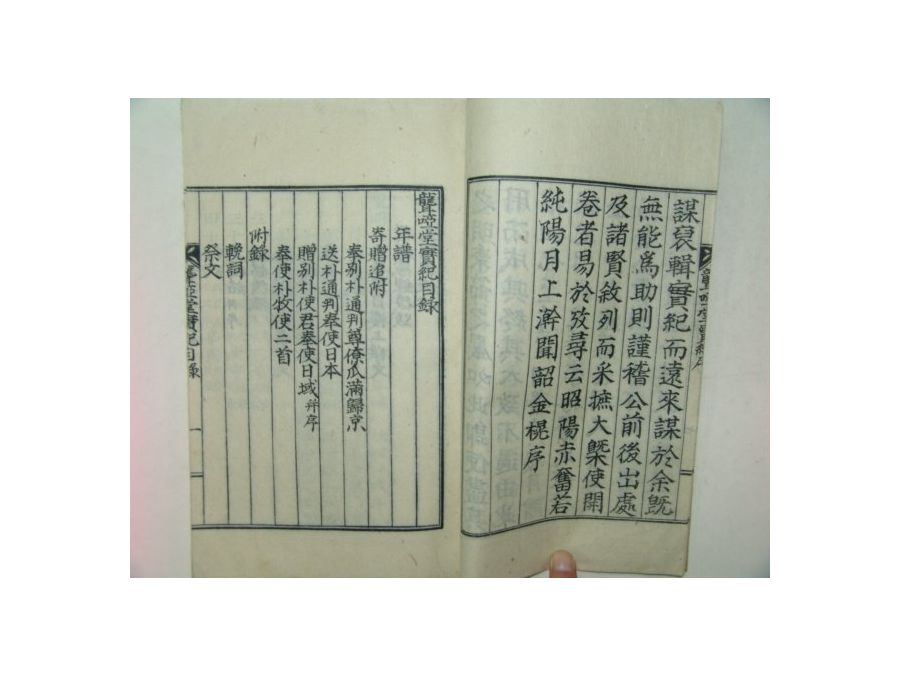 謀裒輯實紀而遠來謀於余旣
無能爲助則謹稽公前後出處
及諸賢敘列而采摭大槩使開
卷者易於攷尋云昭陽赤奮若
純陽月上澣聞韶金榥序
聾啞堂實紀序
聾啞堂實紀目錄
年譜
寄贈追附
奉別朴通判尊僚瓜滿歸京
送朴通判奉使日本
贈別朴使君奉使日域 幷序
奉使朴牧使二首
附錄
輓詞
祭文
聾啞堂實紀目錄
一